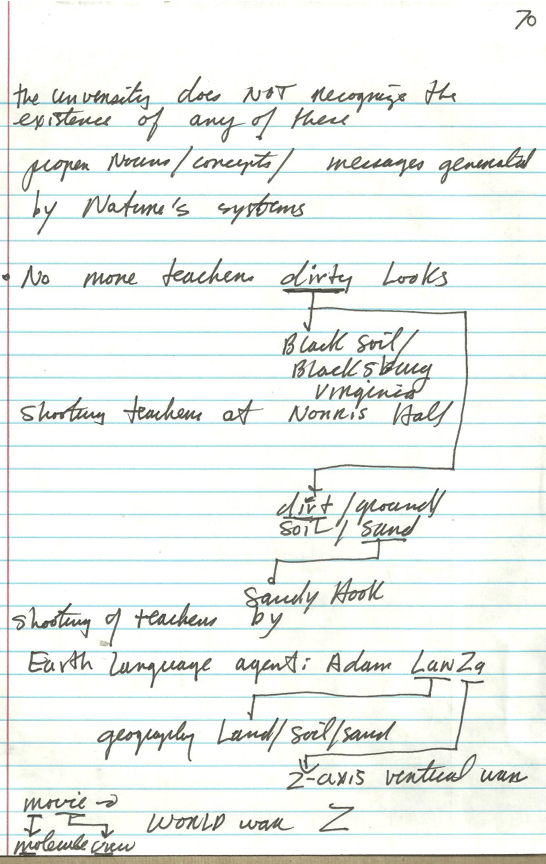 70
the university does NOT recognize the
existence of any of these
proper Nouns/concepts/ messages generated
by Nature's systems
• No more teachers dirty Looks
Black soil/
Blacksburg
Virginia
Shooting teachers at Norris Hall
dirt /ground/
soil / sand
Sandy Hook
shooting of teachers by
Earth Language agent: Adam LanZa
geography Land/soil/sand
Z-axis vertical war
movie → WORLD war Z
molecule crew